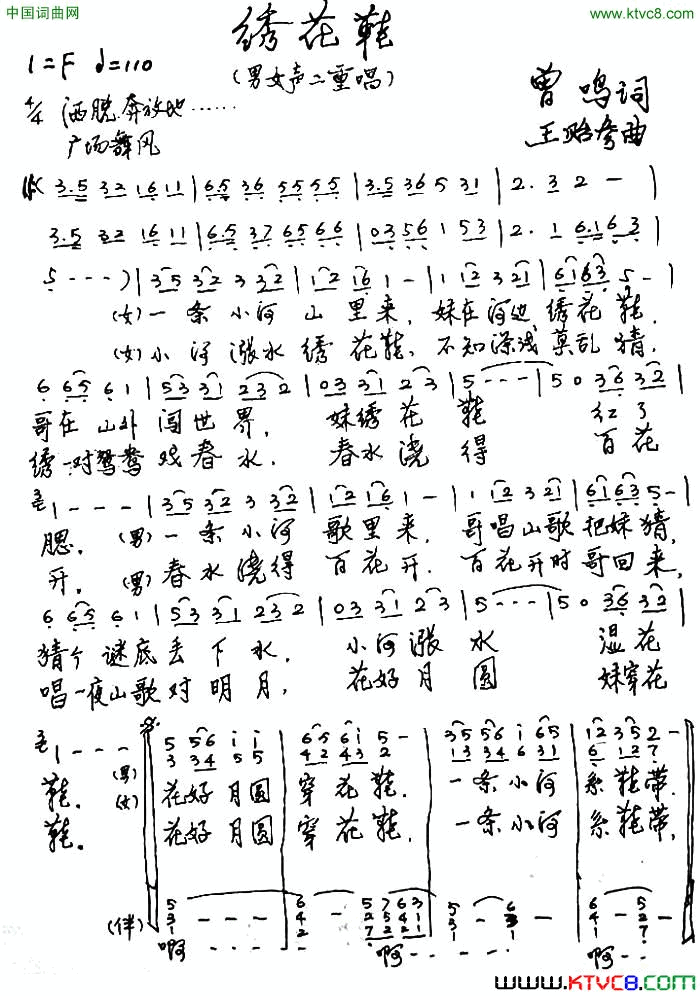 中国词曲网
www.ktvc8.com
绣花鞋
(男女声二重唱)
1=F ♩=110
4/4 洒脱.奔放地……
广场舞风
曾鸣词
王贻彦曲
3.5 32 16 11 | 6.5 36 55 55 | 3.5 36 5 31 | 2. 3 2 — |
3.5 32 16 11 | 6.5 37 65 66 | 035 61 1 53 | 2. 1 6.1 63 |
5 - - - ) | 35 32 3 32 | 12 16 1 - | 1 12 3 21 | 61 63 5 - |
(女)一条小河山里来，妹在河边绣花鞋，
(女)小河涨水绣花鞋，不知深浅莫乱猜，
6 65 6 1 | 53 31 23 2 | 03 31 2 3 | 5 - - - | 5 0 36 32 |
哥在山外闯世界，妹绣花鞋红了
绣一对鸳鸯戏春水，春水浇得百花
1 - - - | 35 32 3 32 | 12 16 1 - | 1 12 3 21 | 61 63 5 - |
腮。(男)一条小河歌里来，哥唱山歌把妹猜，
开。(男)春水浇得百花开，百花开时哥回来，
6 65 6 1 | 53 31 23 2 | 03 31 2 3 | 5 - - - | 5 0 36 32 |
猜个谜底丢下水，小河涨水湿花
唱一夜山歌对明月，花好月圆妹穿花
1 - - -
5 56 i i | 6 5 6 i 5 - | 35 56 i 65 | 12 35 2 - |
3 34 5 5 | 4 2 4 3 2 | 13 34 6 31 | 6 12 7 |
鞋。(男)花好月圆穿花鞋，一条小河系鞋带，
鞋。(女)花好月圆穿花鞋，一条小河系鞋带，
(伴)
啊 - - - - 啊 - - - - 啊 - -
www.KTVC8.COM